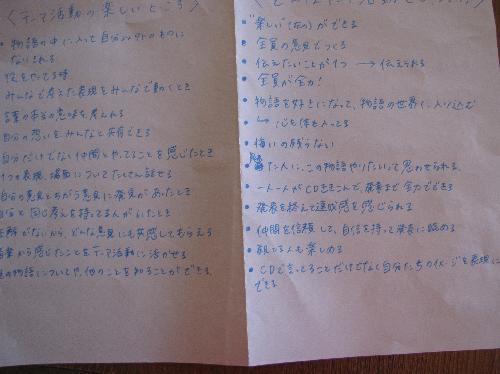 〈テーマ活動の楽しいところ〉
・物語の中に入って自分以外のものに
なられる
役をやってる時
みんなで考えた表現をみんなで動くとき
言葉の本当の意味を考えれる
自分の思いをみんなと共有できる
自分だけでない仲間とやってることを感じたとき
1つの表現、場面についてたくさん話せる
自分の意見とちがう意見に発見があったとき
自分と同じ考えを持ってる人がいたとき
正解がないから、どんな意見にも共感してもらえる
から感じたことをテーマ活動に活かせる
の物語についてや、他のことを知ることができる
・"楽しい"ができる
・全員の意見でつくる
・伝えたいことが1つ → 伝えられる
・全員が全力!
・物語を好きになって、物語の世界に入り込む
・↳ 心も体も入ってる
・悔いの残らない
・観た人に、この物語やりたいって思わせられる
・一人一人がCDをきこんで、発表まで全力でできる
・発表を終えて達成感を感じられる
・仲間を信頼して、自信を持って発表に臨める
・観てる人も楽しめる
・CDで言ってることだけでなく自分たちのイメージを表現に
できる